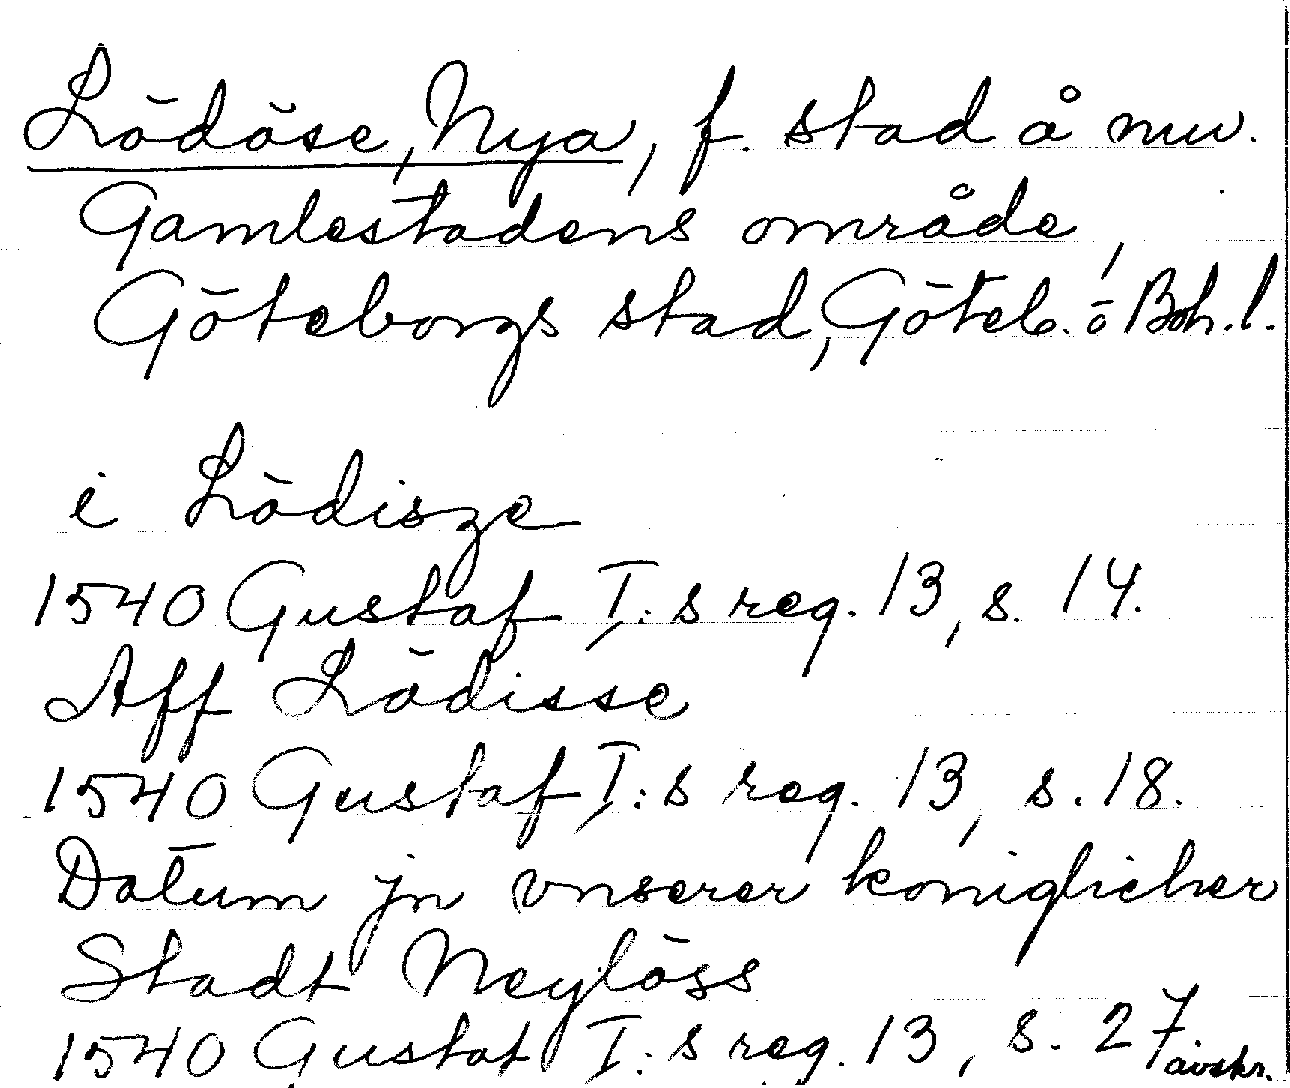 Lödöse, Nya, f. stad å nuv.
Gamlestadens område,
Göteborgs stad, Göteb. o Boh. l.
i Lödisze
1540 Gustaf I:s reg. 13, s. 14.
Aff Lödisse
1540 Gustaf I:s reg. 13, s. 18.
Datum jn vnserer koniglicher
Stadt Neylöss
1540 Gustaf I:s reg. 13, s. 27 avskr.